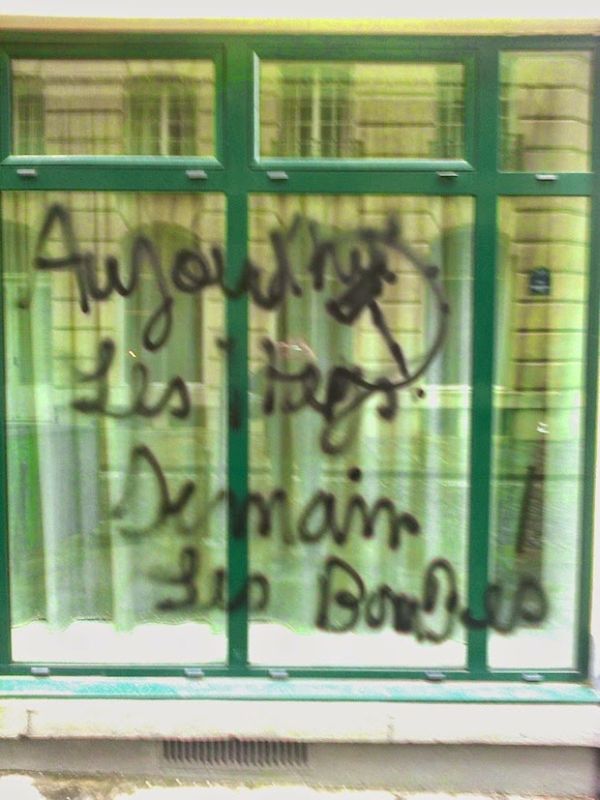 Aujourd'hui
Les tags
Demain
Les Bombes